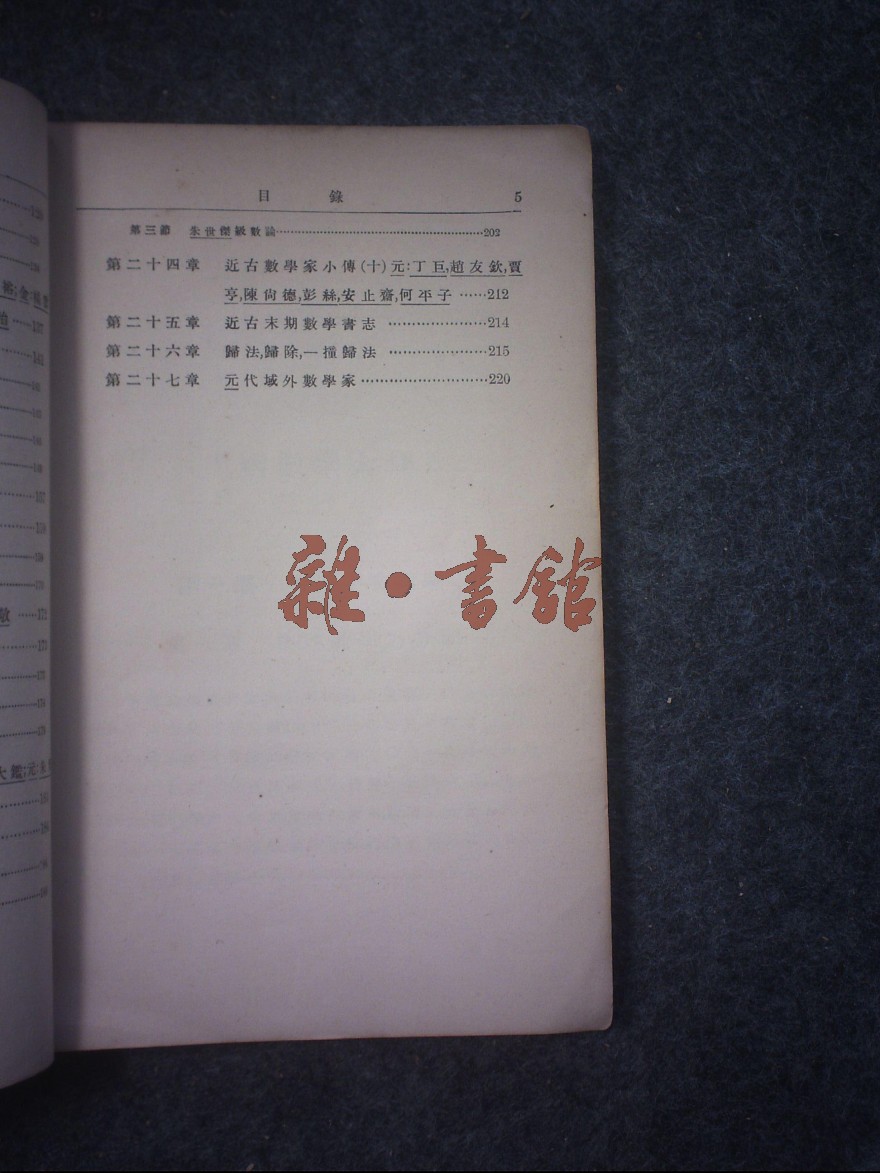 目錄 5
第三節 朱世傑級數論……202
第二十四章 近古數學家小傳(十)元:丁巨,趙友欽,賈
亨,陳尙德,彭絲,安止齋,何平子……212
第二十五章 近古末期數學書志……214
第二十六章 歸法,歸除,一撞歸法……215
第二十七章 元代域外數學家……220
雜•書館
137
142
157
172
173
大鑑;元:朱